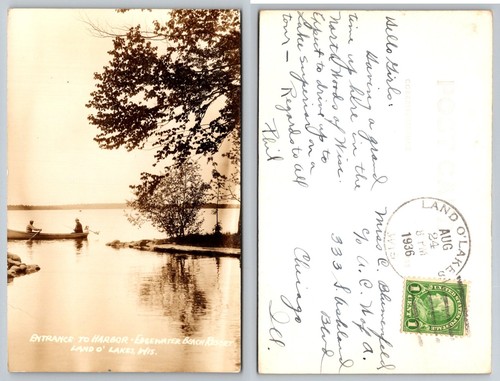 ENTRANCE TO HARBOR - EDGEWATER BEACH RESORT
LAND O' LAKES, WIS.
Hello Girls:
Having a good
time up here in the
North Woods of Wisc.
Expect to drive up to
Lake Superior on a
tour - Regards to all
Phil
Miss C. Blumenfeld
c/o A.C.W. of A.
333 S. Ashland
Blvd
Chicago
Ill.
LAND O'LAKES
AUG
24
1936
WIS.
1 CENT 1